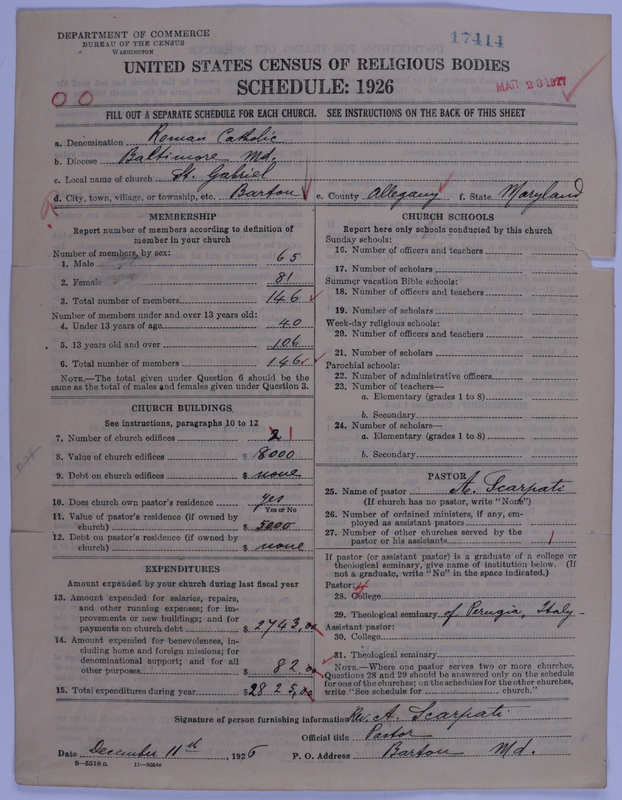 DEPARTMENT OF COMMERCE
BUREAU OF THE CENSUS
WASHINGTON
17414
UNITED STATES CENSUS OF RELIGIOUS BODIES
SCHEDULE: 1926
MAR 23 1927
FILL OUT A SEPARATE SCHEDULE FOR EACH CHURCH. SEE INSTRUCTIONS ON THE BACK OF THIS SHEET
a. Denomination Roman Catholic
b. Diocese Baltimore Md.
c. Local name of church St. Gabriel
d. City, town, village, or township, etc. Barton e. County Allegany f. State Maryland
MEMBERSHIP
Report number of members according to definition of
member in your church
Number of members, by sex:
1. Male 65
2. Female 81
3. Total number of members 146
Number of members under and over 13 years old:
4. Under 13 years of age 40
5. 13 years old and over 106
6. Total number of members 146
NOTE.—The total given under Question 6 should be
same as the total of males and females given under Question 3.
CHURCH BUILDINGS
See instructions, paragraphs 10 to 12
7. Number of church edifices 2 1
8. Value of church edifices $ 8000
9. Debt on church edifices $ none
10. Does church own pastor's residence yes
Yes or No
11. Value of pastor's residence (if owned by
church) $ 5000
12. Debt on pastor's residence (if owned by
church) $ none
EXPENDITURES
Amount expended by your church during last fiscal year
13. Amount expended for salaries, repairs,
and other running expenses; for im-
provements or new buildings; and for
payments on church debt $ 2743,00
14. Amount expended for benevolences, in-
cluding home and foreign missions; for
denominational support; and for all
other purposes $ 82,00
15. Total expenditures during year $ 2825,00
CHURCH SCHOOLS
Report here only schools conducted by this church
Sunday schools:
16. Number of officers and teachers
17. Number of scholars
Summer vacation Bible schools:
18. Number of officers and teachers
19. Number of scholars
Week-day religious schools:
20. Number of officers and teachers
21. Number of scholars
Parochial schools:
22. Number of administrative officers
23. Number of teachers—
a. Elementary (grades 1 to 8)
b. Secondary
24. Number of scholars—
a. Elementary (grades 1 to 8)
b. Secondary
PASTOR
25. Name of pastor A. Scarpati
(If church has no pastor, write "None")
26. Number of ordained ministers, if any, em-
ployed as assistant pastors
27. Number of other churches served by the
pastor or his assistants 1
If pastor (or assistant pastor) is a graduate of a college or
theological seminary, give name of institution below. (If
not a graduate, write "No" in the space indicated.)
Pastor:
28. College
29. Theological seminary of Perugia, Italy
Assistant pastor:
30. College
31. Theological seminary
NOTE.—Where one pastor serves two or more churches,
Questions 28 and 29 should be answered only on the schedule
for one of the churches; on the schedules for the other churches,
write "See schedule for church."
Signature of person furnishing information Rev. A. Scarpati
Official title Pastor
Date December 11th, 1926 P. O. Address Barton Md.
8—5518 a